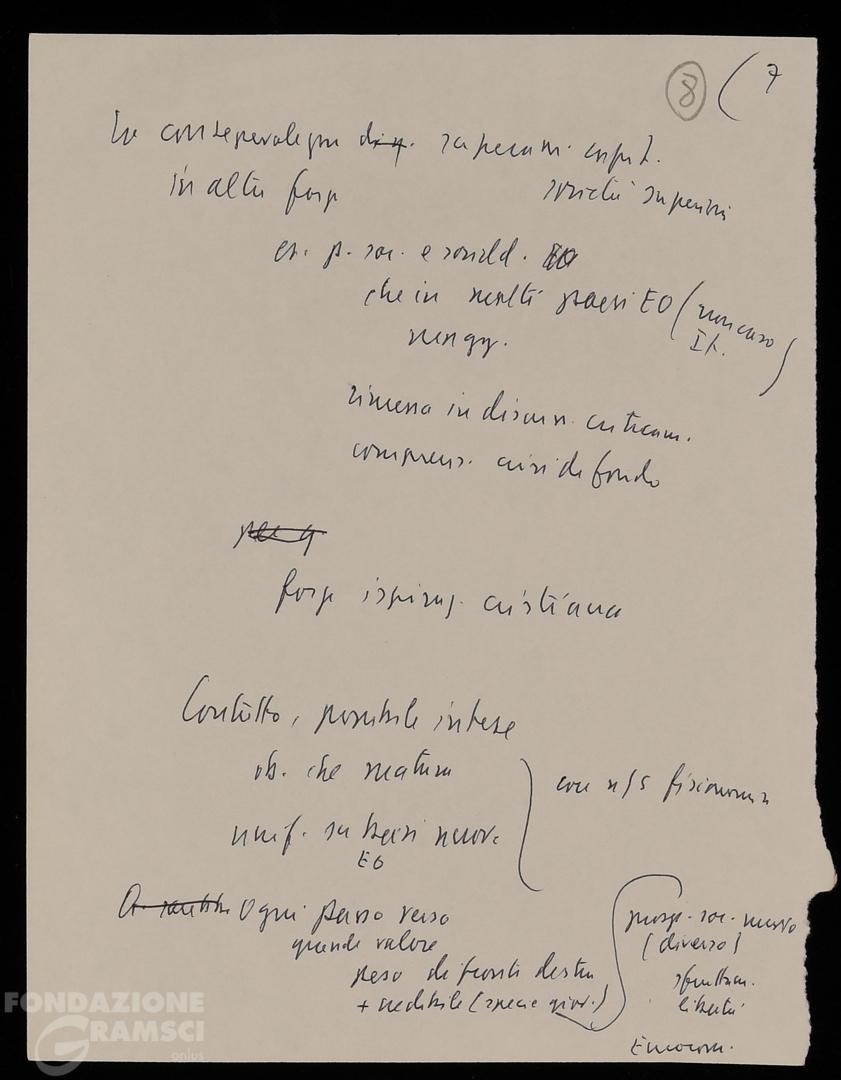 8 ( 7
La consapevolezza di q. superam. capit.
in altre forze società superiori
es. p. soc. e sociald.
che in molti paesi EO (non caso It.)
magg.
rimessa in discuss. criticam.
comprens. crisi di fondo
forze ispiraz. cristiana
Contatto, possibile intese
ob. che matura
unif. su basi nuove
EO
con n/s fisionomia
Ogni passo verso
grande valore
peso di fronti destra
+ credibile (specie giov.)
prosp. soc. nuovo
(diverso)
sfruttam.
libertà
Eurocom.
FONDAZIONE
GRAMSCI
onlus